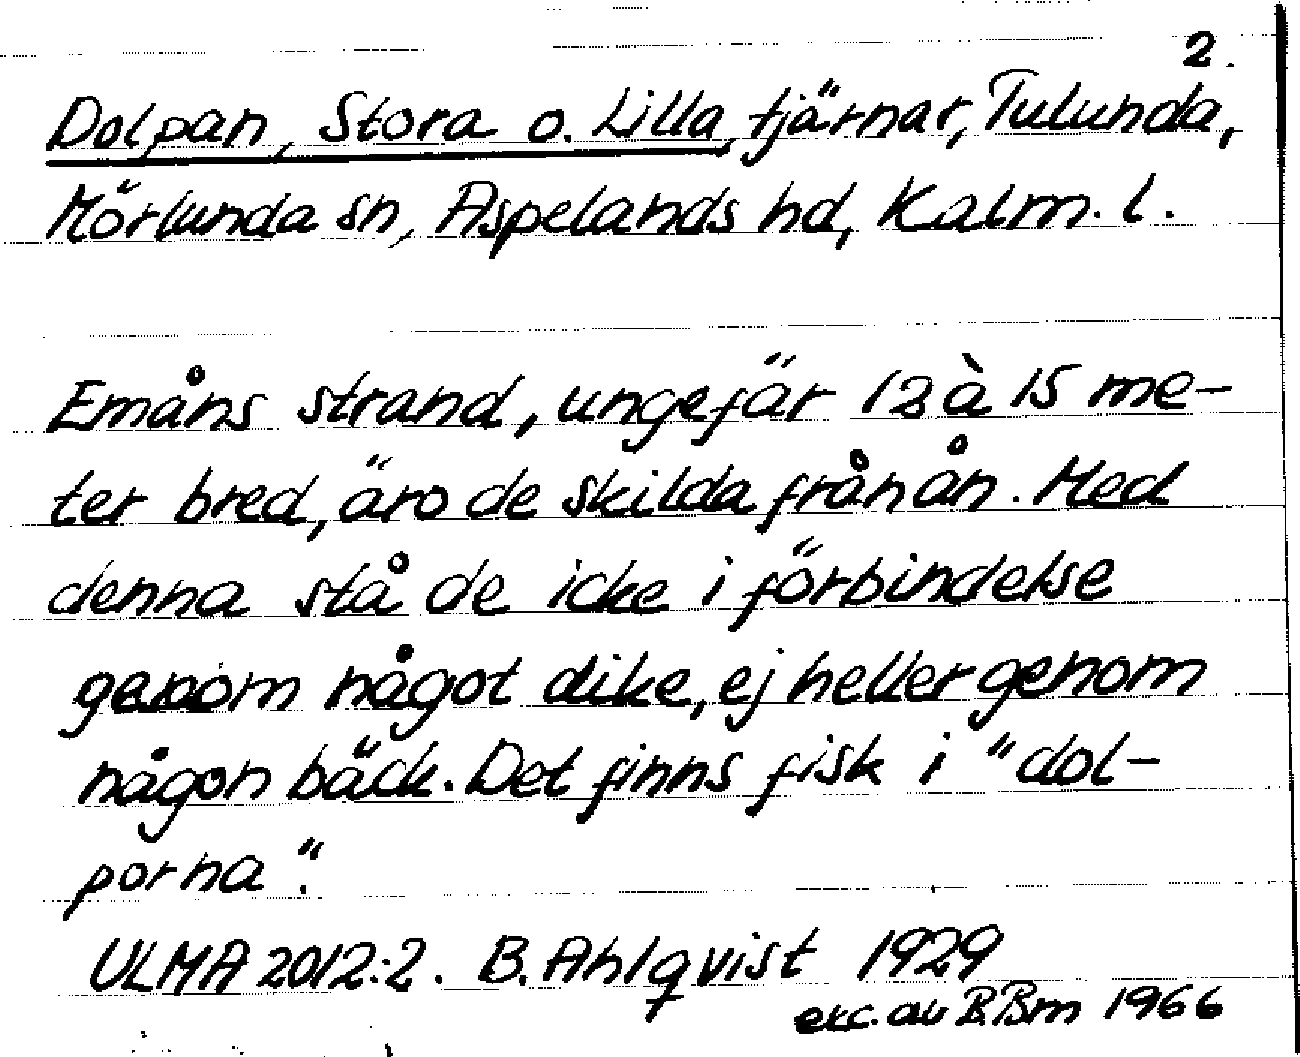 2.
Dolpan, Stora o. Lilla, tjärnar, Tulunda,
Mörlunda sn, Aspelands hd, Kalm. l.
Emåns strand, ungefär 12 à 15 me-
ter bred, äro de skilda från ån. Med
denna stå de icke i förbindelse
genom något dike, ej heller genom
någon bäck. Det finns fisk i "dol-
porna".
ULMA 2012:2. B. Ahlqvist 1929
exc. av B.Bm 1966